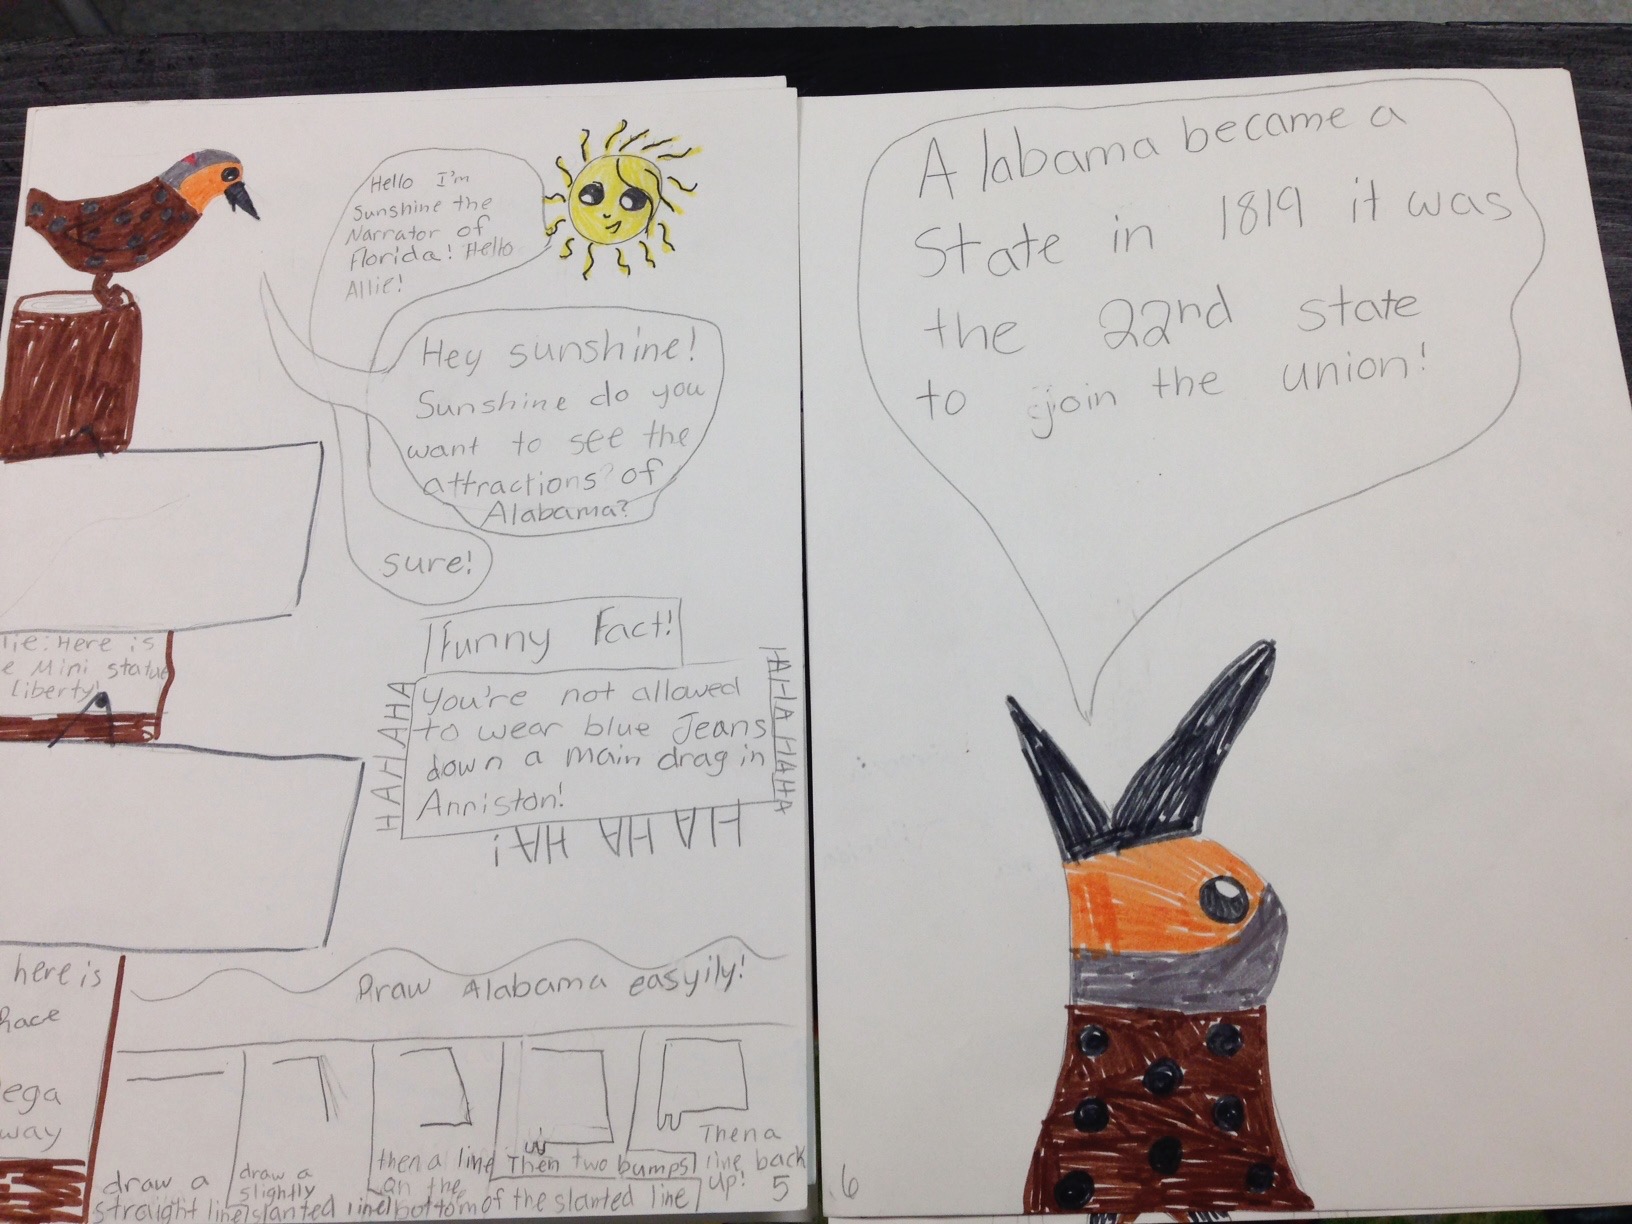 Hello I'm
Sunshine the
Narrator of
Florida! Hello
Allie!
Hey sunshine!
Sunshine do you
want to see the
attractions? of
Alabama?
sure!
Funny Fact!
You're not allowed
to wear blue Jeans
down a main drag in
Anniston!
HAHAHAHA
HAHAHAHA
HA HA HA!
lie: Here is
e Mini statue
liberty!
here is
ega
way
Draw Alabama easyily!
draw a
straight line
draw a
slightly
slanted line
then a line
on the
bottom of the slanted line
Then two bumps
Then a
line back
up!
5
Alabama became a
State in 1819 it was
the 22nd state
to join the union!
6